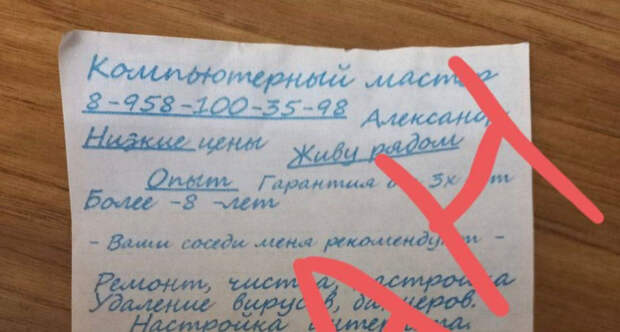 Компьютерный мастер
8-958-100-35-98
Александр
Низкие цены Живу рядом
Опыт Гарантия 3х
Более -8 -лет
- Ваши соседи меня рекомендуют -
Ремонт, чистка, настройка
Удаление вирусов, баннеров.
Настройка интернета.